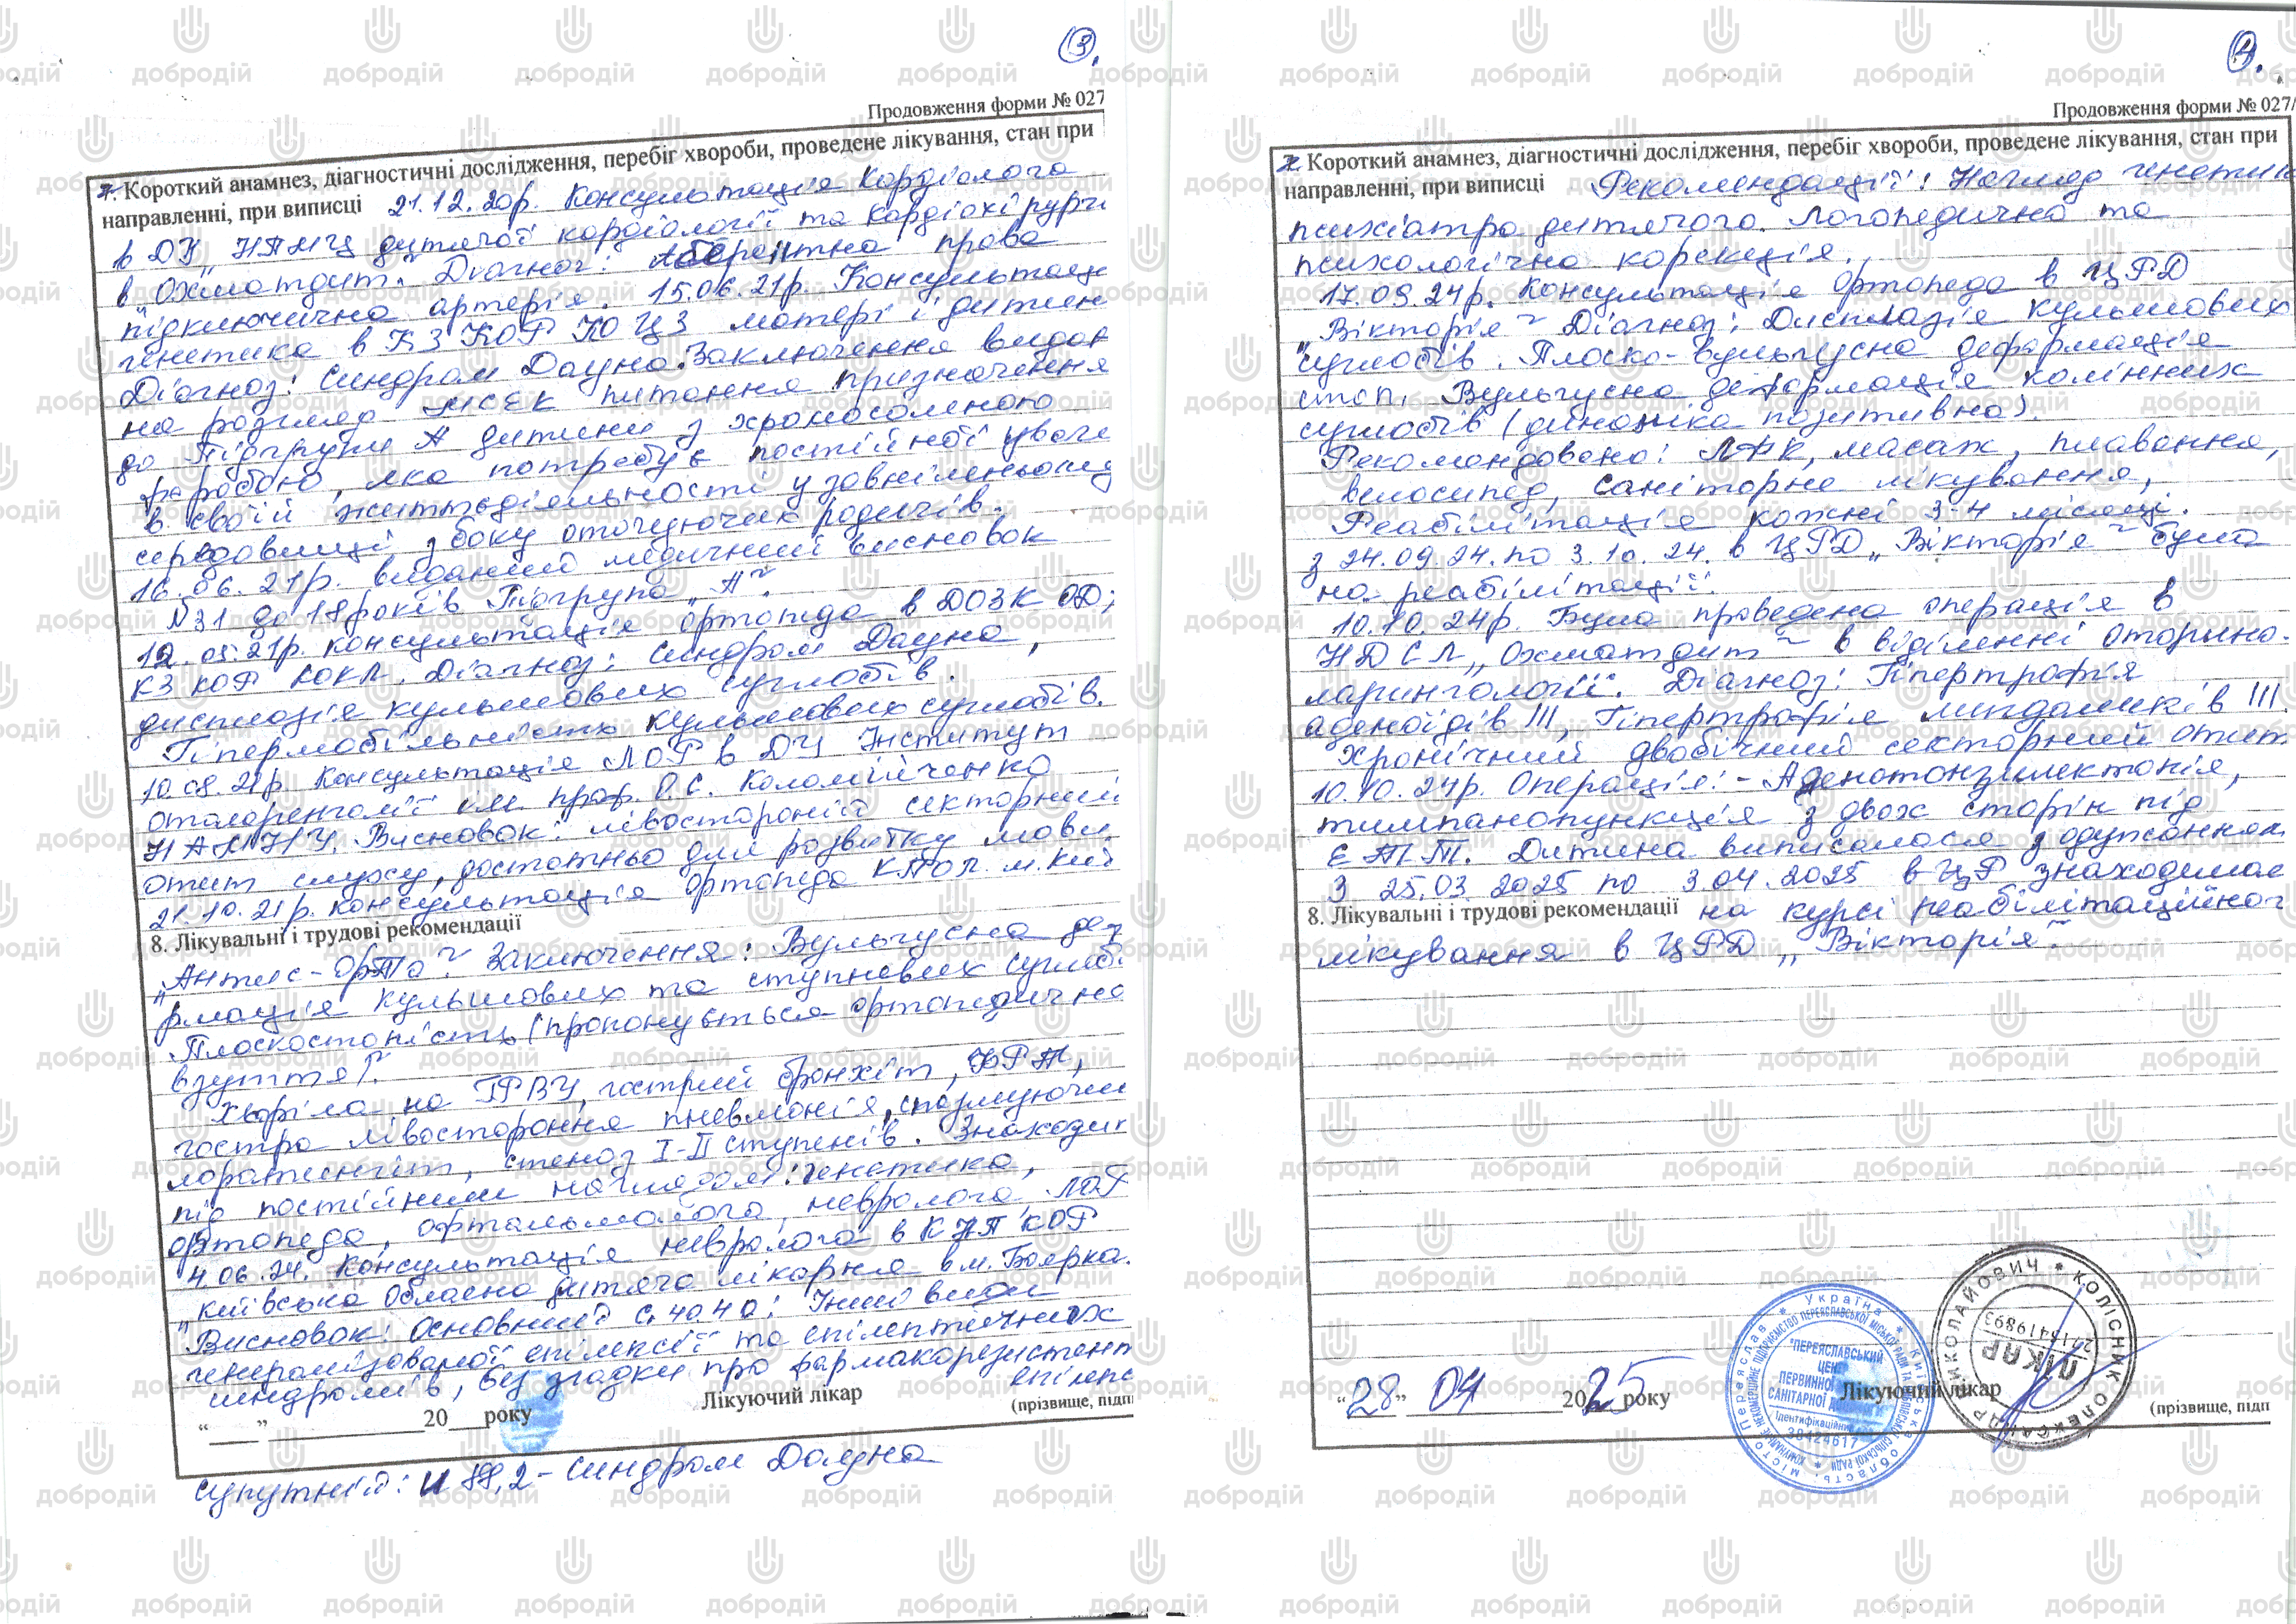 3.
Продовження форми № 027
7. Короткий анамнез, діагностичні дослідження, перебіг хвороби, проведене лікування, стан при
направленні, при виписці 21.12.20р. Консультація кардіолога
в ДУ „НПМЦ дитячої кардіології та кардіохірургі
в Охматдит. Діагноз: Аберентна права
підключична артерія. 15.06.21р. Консультація
генетика в КЗ КОР КОЦЗ матері і дитин
Діагноз: Синдром Дауна. Заключення видан
на розгляд МСЕК питання призначення
до Підгрупи А дитини з хромосомною
хворобою, яка потребує постійної уваги
в своїй життєдіяльності у зовнішньому
середовищі з боку оточуючих родичів.
16.06.21р. виданий медичний висновок
№31 до 18 років Підгрупа „А”.
12.05.21р. консультація ортопеда в ДОЗ К ОД;
КЗ КОР КОКЛ. Діагноз: Синдром Дауна,
дисплазія кульшових суглобів.
Гіпермобільність кульшових суглобів.
10.08.21р. Консультація ЛОР в ДУ Інститут
отоларенголії ім. проф. О.С. Коломійченко
НАМНУ. Висновок: лівосторонній секторний
отит слуху, достатньо для розвитку мови.
21.10.21р. консультація ортопеда м. Киї
8. Лікувальні і трудові рекомендації
„Антис-Орто” Заключення: Вульгусна деф
рмація кульшових та ступневих суглобі
Плоскостопість (пропонується ортопедична
взуття).
Хворіла на ГРВІ, гострий бронхіт,
гостра лівостороння пневмонія, стенозуючий
ларингіт, стеноз I-II ступенів. Знаходит
під постійним наглядом: генетика,
ортопеда, офтальмолога, невролога, ЛОР
4.06.24. Консультація невролога в КНП КОР
„Київська обласна дитяча лікарня в м. Боярка.
Висновок: Основний G.40.4.0: Інші види
генералізованої епілепсії та епілептичних
синдромів, без згадки про фармакорезистент
епілепс
“____” ____________20___року
Лікуючий лікар
(прізвище, підп
супутній: Q 90,2 - синдром Дауна
4.
Продовження форми № 027/
7. Короткий анамнез, діагностичні дослідження, перебіг хвороби, проведене лікування, стан при
направленні, при виписці Рекомендації: Нагляд генетик
психіатра дитячого. Логопедична та
психологічна корекція.
17.09.24р. Консультація ортопеда в ЦРД
„Вікторія” Діагноз: Дисплазія кульшових
суглобів. Плоско-вульгусна деформація
стоп. Вульгусна деформація колінних
суглобів (динаміка позитивна).
Рекомендовано: ЛФК, масаж, плавання,
велосипед, саніторне лікування,
Реабілітація кожні 3-4 місяці.
з 24.09.24. по 3.10.24. в ЦРД „Вікторія” була
на реабілітації.
10.10.24р. Була проведена операція в
НДСЛ „Охматдит” в віділенні оторино-
ларингології. Діагноз: Гіпертрофія
аденоїдів III, Гіпертрофія мигдаликів III.
Хронічний двобічний секторний отит.
10.10.24р. Операція: - Аденотонзилектомія,
тимпанопункція з двох сторін під
ЕТТ. Дитина виписалася з одужанням
З 25.03.2025 по 3.04.2025 в ЦР знаходилас
8. Лікувальні і трудові рекомендації на курсі реабілітаційног
лікування в ЦРД „Вікторія”.
“28” 04 2025 року
Лікуючий лікар
(прізвище, підп
* Україна * Київська область, місто Переяслав
КОМУНАЛЬНЕ НЕКОМЕРЦІЙНЕ ПІДПРИЄМСТВО ПЕРЕЯСЛАВСЬКОЇ МІСЬКОЇ РАДИ
"ПЕРЕЯСЛАВСЬКИЙ
ЦЕН
ПЕРВИННОЇ
САНІТАРНОЇ
Ідентифікаційний
38424617
* КОЛІСНИК ОЛЕКСАНДР МИКОЛАЙОВИЧ
ЛІКАР
2715419893
добродій